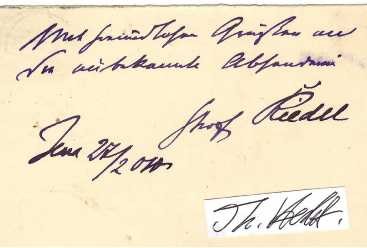 Mit freundlichen Grüßen an
die unbekannte Absenderin
Prof Riedel
Jena 27/2
Th.